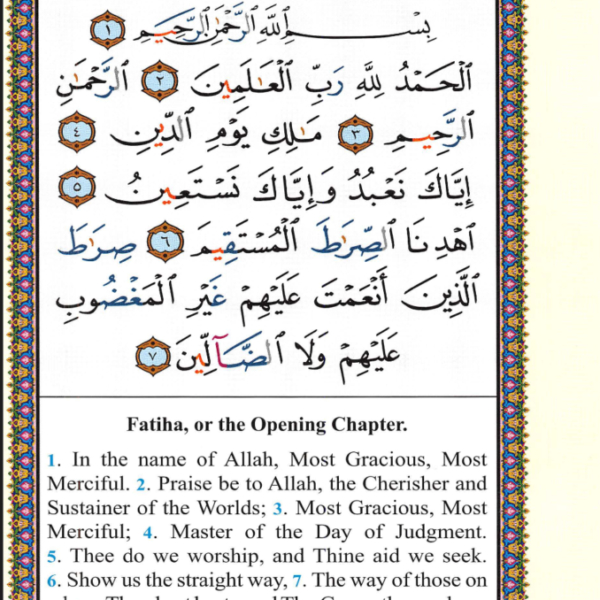 بِسْمِ ٱللَّهِ ٱلرَّحْمَٰنِ ٱلرَّحِيمِ ١
ٱلْحَمْدُ لِلَّهِ رَبِّ ٱلْعَٰلَمِينَ ٢ ٱلرَّحْمَٰنِ
ٱلرَّحِيمِ ٣ مَٰلِكِ يَوْمِ ٱلدِّينِ ٤
إِيَّاكَ نَعْبُدُ وَإِيَّاكَ نَسْتَعِينُ ٥
ٱهْدِنَا ٱلصِّرَٰطَ ٱلْمُسْتَقِيمَ ٦ صِرَٰطَ
ٱلَّذِينَ أَنْعَمْتَ عَلَيْهِمْ غَيْرِ ٱلْمَغْضُوبِ
عَلَيْهِمْ وَلَا ٱلضَّآلِّينَ ٧
Fatiha, or the Opening Chapter.
1. In the name of Allah, Most Gracious, Most
Merciful. 2. Praise be to Allah, the Cherisher and
Sustainer of the Worlds; 3. Most Gracious, Most
Merciful; 4. Master of the Day of Judgment.
5. Thee do we worship, and Thine aid we seek.
6. Show us the straight way, 7. The way of those on